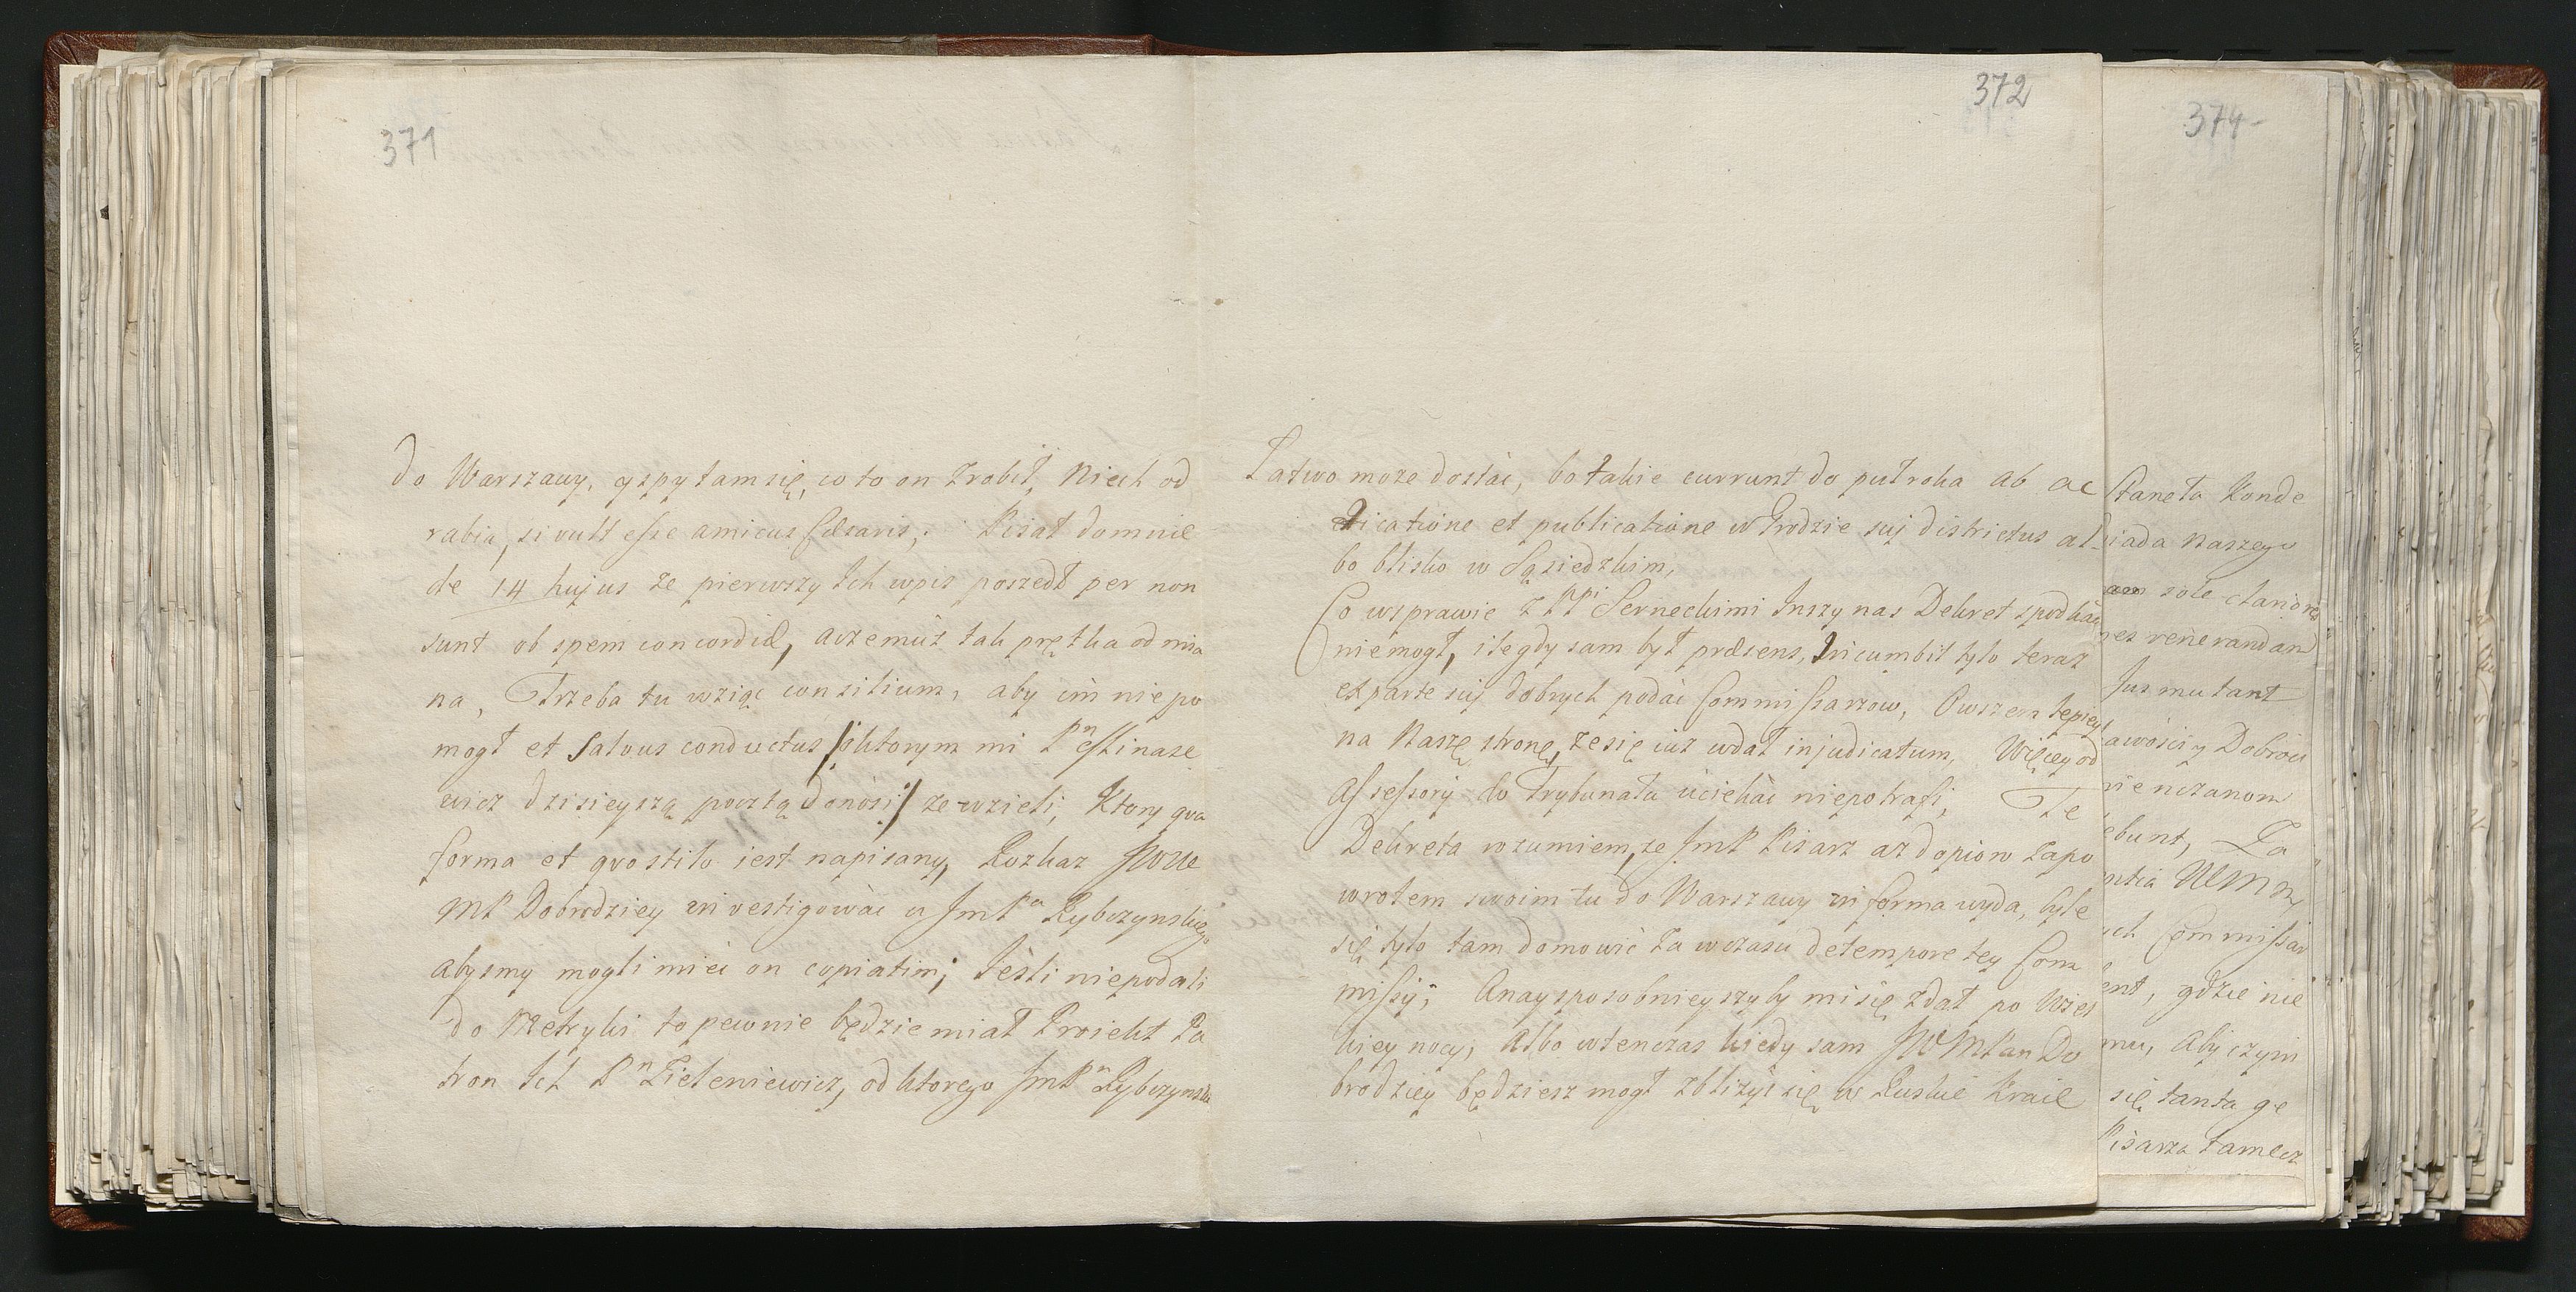 371
do Warszawy, y spytam się, co to on zrobił, niech od
rabia, si vult esse amicus Cæsaris, Pisał do mnie
de 14 hujus że pierwszy Ich wpis poszedł per non
sunt ob spem concordiæ, aczemuż tak prętka odmia
na, Trzeba tu wziąć consilium, aby im nie po
mogł et salvus conductus /: o ktorym mi Pn
ewicz dzisieyszą pocztą donosi :/ że wzieli, Ktory qva
forma et qvo stilo iest napisany, Rozkaz JWWe
MP Dobrodziey investigować u JmPa Rybczynskiego
abysmy mogli mieć on copiatim; Jeśli niepodali
do Metryki to pewnie będzie miał Proiekt Pa
tron Ich Pn Zieleniewicz, od ktorego JmPn Rybczynski
372
Łatwo może dostać, bo takie currunt do putroka ab ac
dicatione et publicatione w Grodzie suj districtus al
bo blisko w Sąsiedzkim,
Co wsprawie z PP Sierneckimi Inszy nas Dekret spodkać
niemogł, ile gdy sam był præsens, Incumbit tylo teraz
ex parte suj dobrych podać Commissarzow, Owszem lepiey
na Naszę stronę, że się iuż udał in judicatum, Więcey od
Assessoryi do Trybunału uciekać niepotrafi, Te
Dekreta rozumiem, że JmP Pisarz aż dopiero za po
wrotem swoim tu do Warszawy in forma wyda, byle
się tylo tam domowić za wczasu de tempore tey Com
missyi; A naysposobnieyszy by mi się zdał po Wiel
kiey nocy, Albo wtenczas kiedy sam JWMPan Do
brodziey będziesz mogł zbliżyć się w Ruskie Kraie
374
Staneła Konde
iada Naszego
sole clariores
venerandam
Jus mutant
Dobrou
ebunt, Za
WMM
Commissar
ent, gdzie nie
mu, Aby czym
się tanta ge
Pisarza tamecz